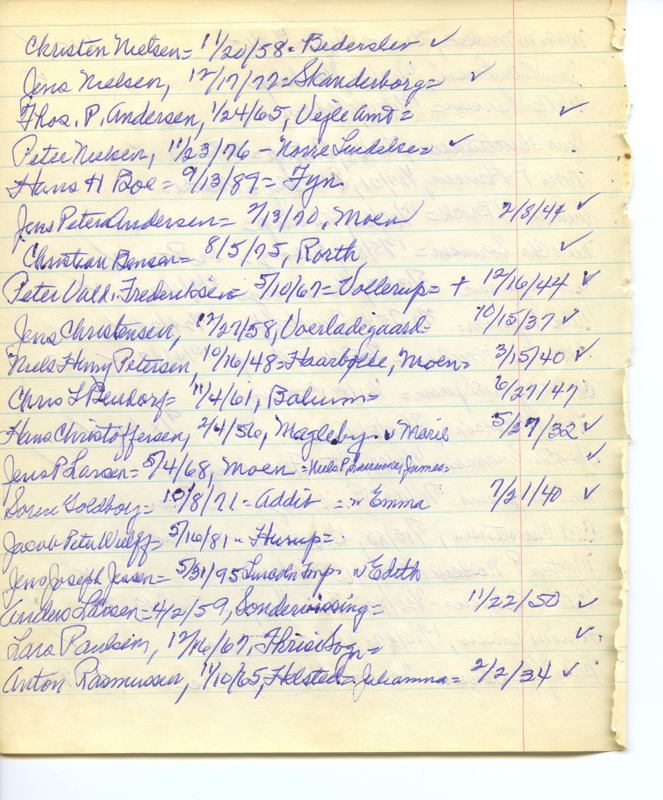 Christen Nielsen = 11/20/58 = Bederslev ✓
Jens Nielsen, 12/17/72 = Skanderborg = ✓
Thos. P. Andersen, 1/24/65, Vejle Amt = ✓
Peter Nielsen, 11/23/76 - Norre Lindelse = ✓
Hans H Boe = 9/13/89 = Fyn
Jens Peter Andersen = 2/13/70, Moen 2/8/44 ✓
Christian Benson = 8/5/75, Rorth ✓
Peter Vald. Frederiksen = 5/10/67 = Vollerup = + 12/16/44 ✓
Jens Christensen, 12/27/58, Voerladegaard = 10/15/37 ✓
Niels Henry Petersen, 10/16/48 = Haarbolle, Moen = 3/15/40 ✓
Chris L = 11/4/61, = 6/27/47
Hans Christoffersen, 2/4/56, Magleby. w Marie 5/27/32 ✓
Jens P. Larsen = 5/4/68, Moen = Niels P, James = ✓
Soren Goldborg = 10/8/71 - Addit = w Emma 7/21/40 ✓
Jacob Peter Wulff = 5/16/81 - Hurup =
Jens Joseph Jensen = 5/31/95 Lincoln Twp w Edith
Anders Larsen = 4/2/59, Sondervissing = 11/22/50 ✓
Lars Paulsen, 12/16/67, Sogn = ✓
Anton Rasmussen, 11/10/65, Holsted = Julianna = 2/2/34 ✓